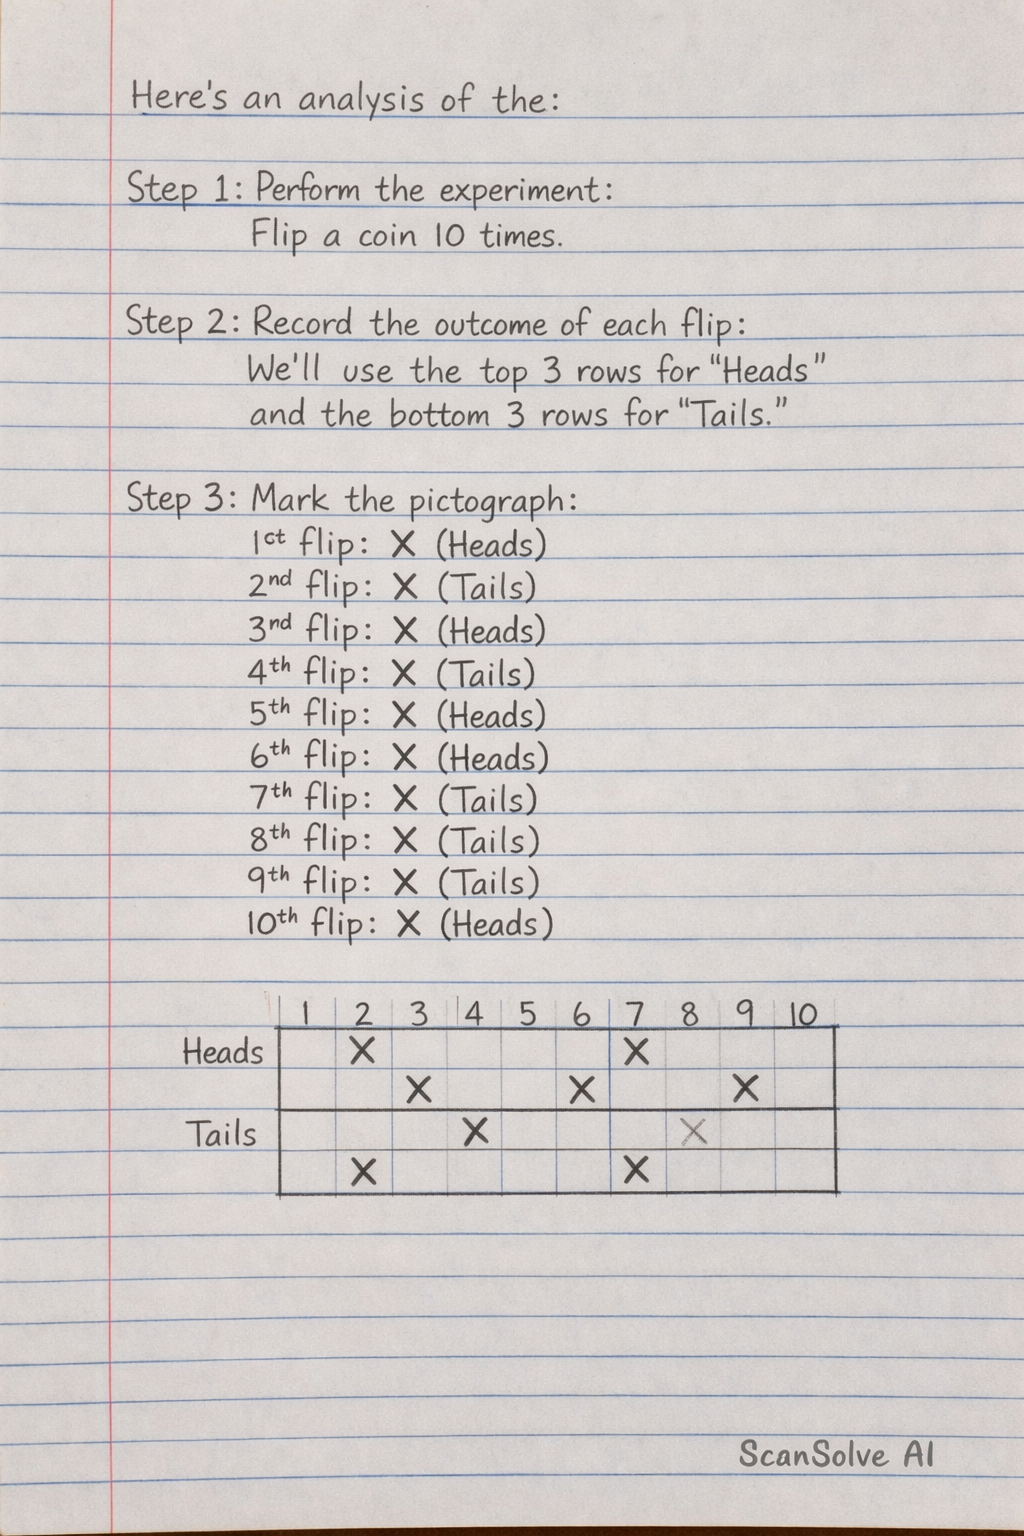 Here's an analysis of the:
Step 1: Perform the experiment:
Flip a coin 10 times.
Step 2: Record the outcome of each flip:
We'll use the top 3 rows for "Heads"
and the bottom 3 rows for "Tails."
Step 3: Mark the pictograph:
1ct flip: X (Heads)
2nd flip: X (Tails)
3nd flip: X (Heads)
4th flip: X (Tails)
5th flip: X (Heads)
6th flip: X (Heads)
7th flip: X (Tails)
8th flip: X (Tails)
9th flip: X (Tails)
10th flip: X (Heads)
1 2 3 4 5 6 7 8 9 10
Heads X X
X X X
Tails X X
X X
ScanSolve AI